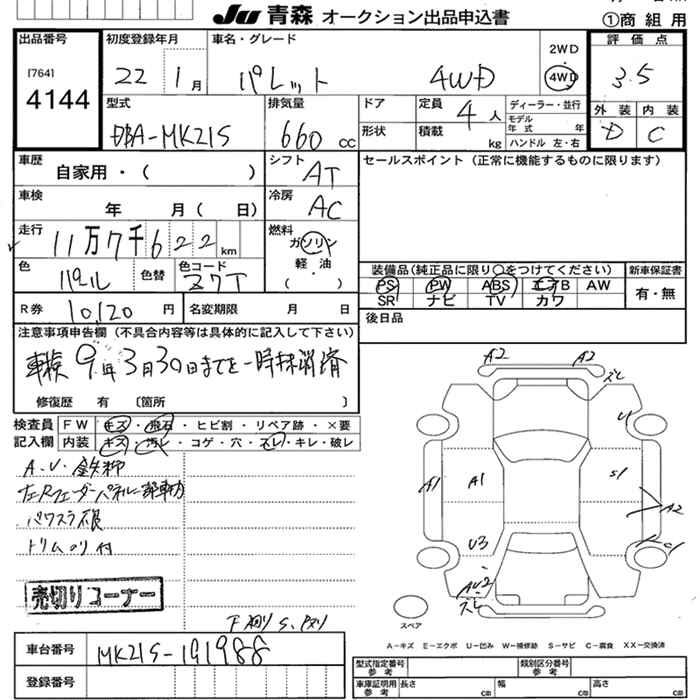 Ju 青森 オークション出品申込書
①商組用
出品番号
[764]
4144
初度登録年月
22 1月
車名・グレード
パレット 4WD
2WD
4WD
評価点
3.5
外装 内装
D C
型式
DBA-MK21S
排気量
660 cc
ドア
形状
定員 4人
積載 kg
ディーラー・並行
モデル年式 年
ハンドル 左・右
車歴
自家用・( )
シフト
AT
セールスポイント (正常に機能するものに限ります)
車検
年 月( 日)
冷房
AC
走行
11万7千622km
燃料
ガソリン
軽油
( ・ )
色
パール
色替
色コード
Z7T
装備品(純正品に限り○をつけてください)
新車保証書
PS PW ABS エアB AW
SR ナビ TV カワ
有・無
R券 10,120 円
名変期限 月 日
後日品
注意事項申告欄(不具合内容等は具体的に記入して下さい)
車検9年3月30日まで一時抹消済
修復歴 有 〔箇所 〕
検査員
記入欄
FW キズ・飛石・ヒビ割・リペア跡・×要
内装 キズ・汚レ・コゲ・穴・スレ・キレ・破レ
A・U・鉄粉
トリムのり付
売切りコーナー
下廻りS、
車台番号
MK21S-191988
登録番号
A2 A2
スレ
U
A1 A1 S1 A2
U3 C1
AU2
スレ
スペア
A−キズ E−エクボ U−凹み W−補修跡 S−サビ C−腐食 XX−交換済
型式指定番号
参考
類別区分番号
参考
車庫証明用
参考
長さ cm 幅 cm 高さ cm